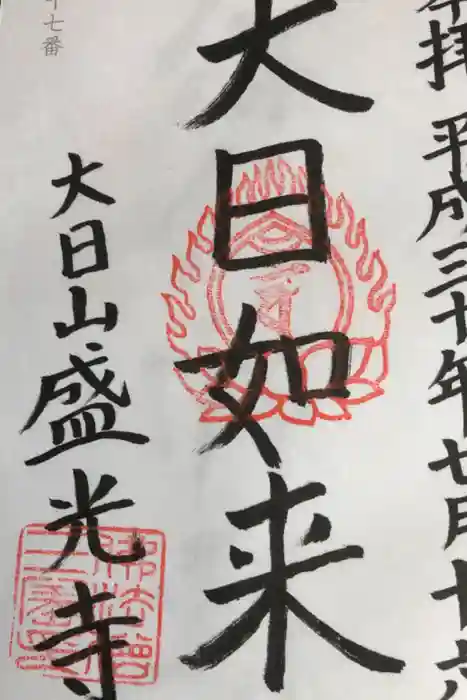 奉拝 平成三十年七月十六
大日如来
十七番
大日山盛光寺